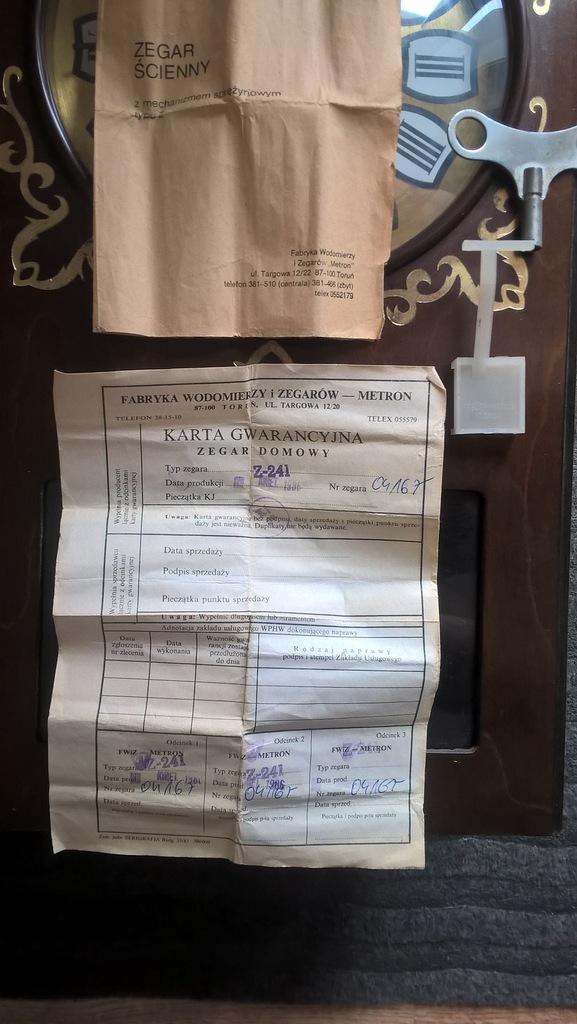 ZEGAR
ŚCIENNY
z mechanizmem sprężynowym
typu Z
Fabryka Wodomierzy
i Zegarów „Metron"
ul. Targowa 12/22 87-100 Toruń
telefon 381-510 (centrala) 381-466 (zbyt)
telex 0552179
FABRYKA WODOMIERZY i ZEGARÓW — METRON
87-100 TORUŃ, UL. TARGOWA 12/20
TELEFON 28-15-10 TELEX 055579
KARTA GWARANCYJNA
ZEGAR DOMOWY
Wypełnia producent
łącznie z odcinkami
karty gwarancyjnej
Typ zegara Z-241
Data produkcji KWIET. 1986 Nr zegara 04167
Pieczątka KJ
Uwaga: Karta gwarancyjna bez podpisu, daty sprzedaży i pieczątki punktu sprze-
daży jest nieważna. Duplikaty nie będą wydawane.
Wypełnia sprzedawca
łącznie z odcinkami
karty gwarancyjnej
Data sprzedaży
Podpis sprzedaży
Pieczątka punktu sprzedaży
Uwaga: Wypełnić długopisem lub atramentem
Adnotacja zakładu usługowego WPHW dokonującego naprawy
Data
zgłoszenia
nr zlecenia
Data
wykonania
Ważność gwa-
rancji została
przedłużona
do dnia
Rodzaj naprawy
podpis i stempel Zakładu Usługowego
Odcinek 1
FWiZ — METRON
Typ zegara Z-241
Data prod. KWIET. 1986
Nr zegara 04167
Data sprzed.
Odcinek 2
FWiZ — METRON
Typ zegara Z-241
Data prod. 1986
Nr zegara 04167
Data sprzed.
Pieczątka i podpis p-tu sprzedaży
Odcinek 3
FWiZ — METRON
Typ zegara
Data prod.
Nr zegara 04167
Data sprzed.
Pieczątka i podpis p-tu sprzedaży